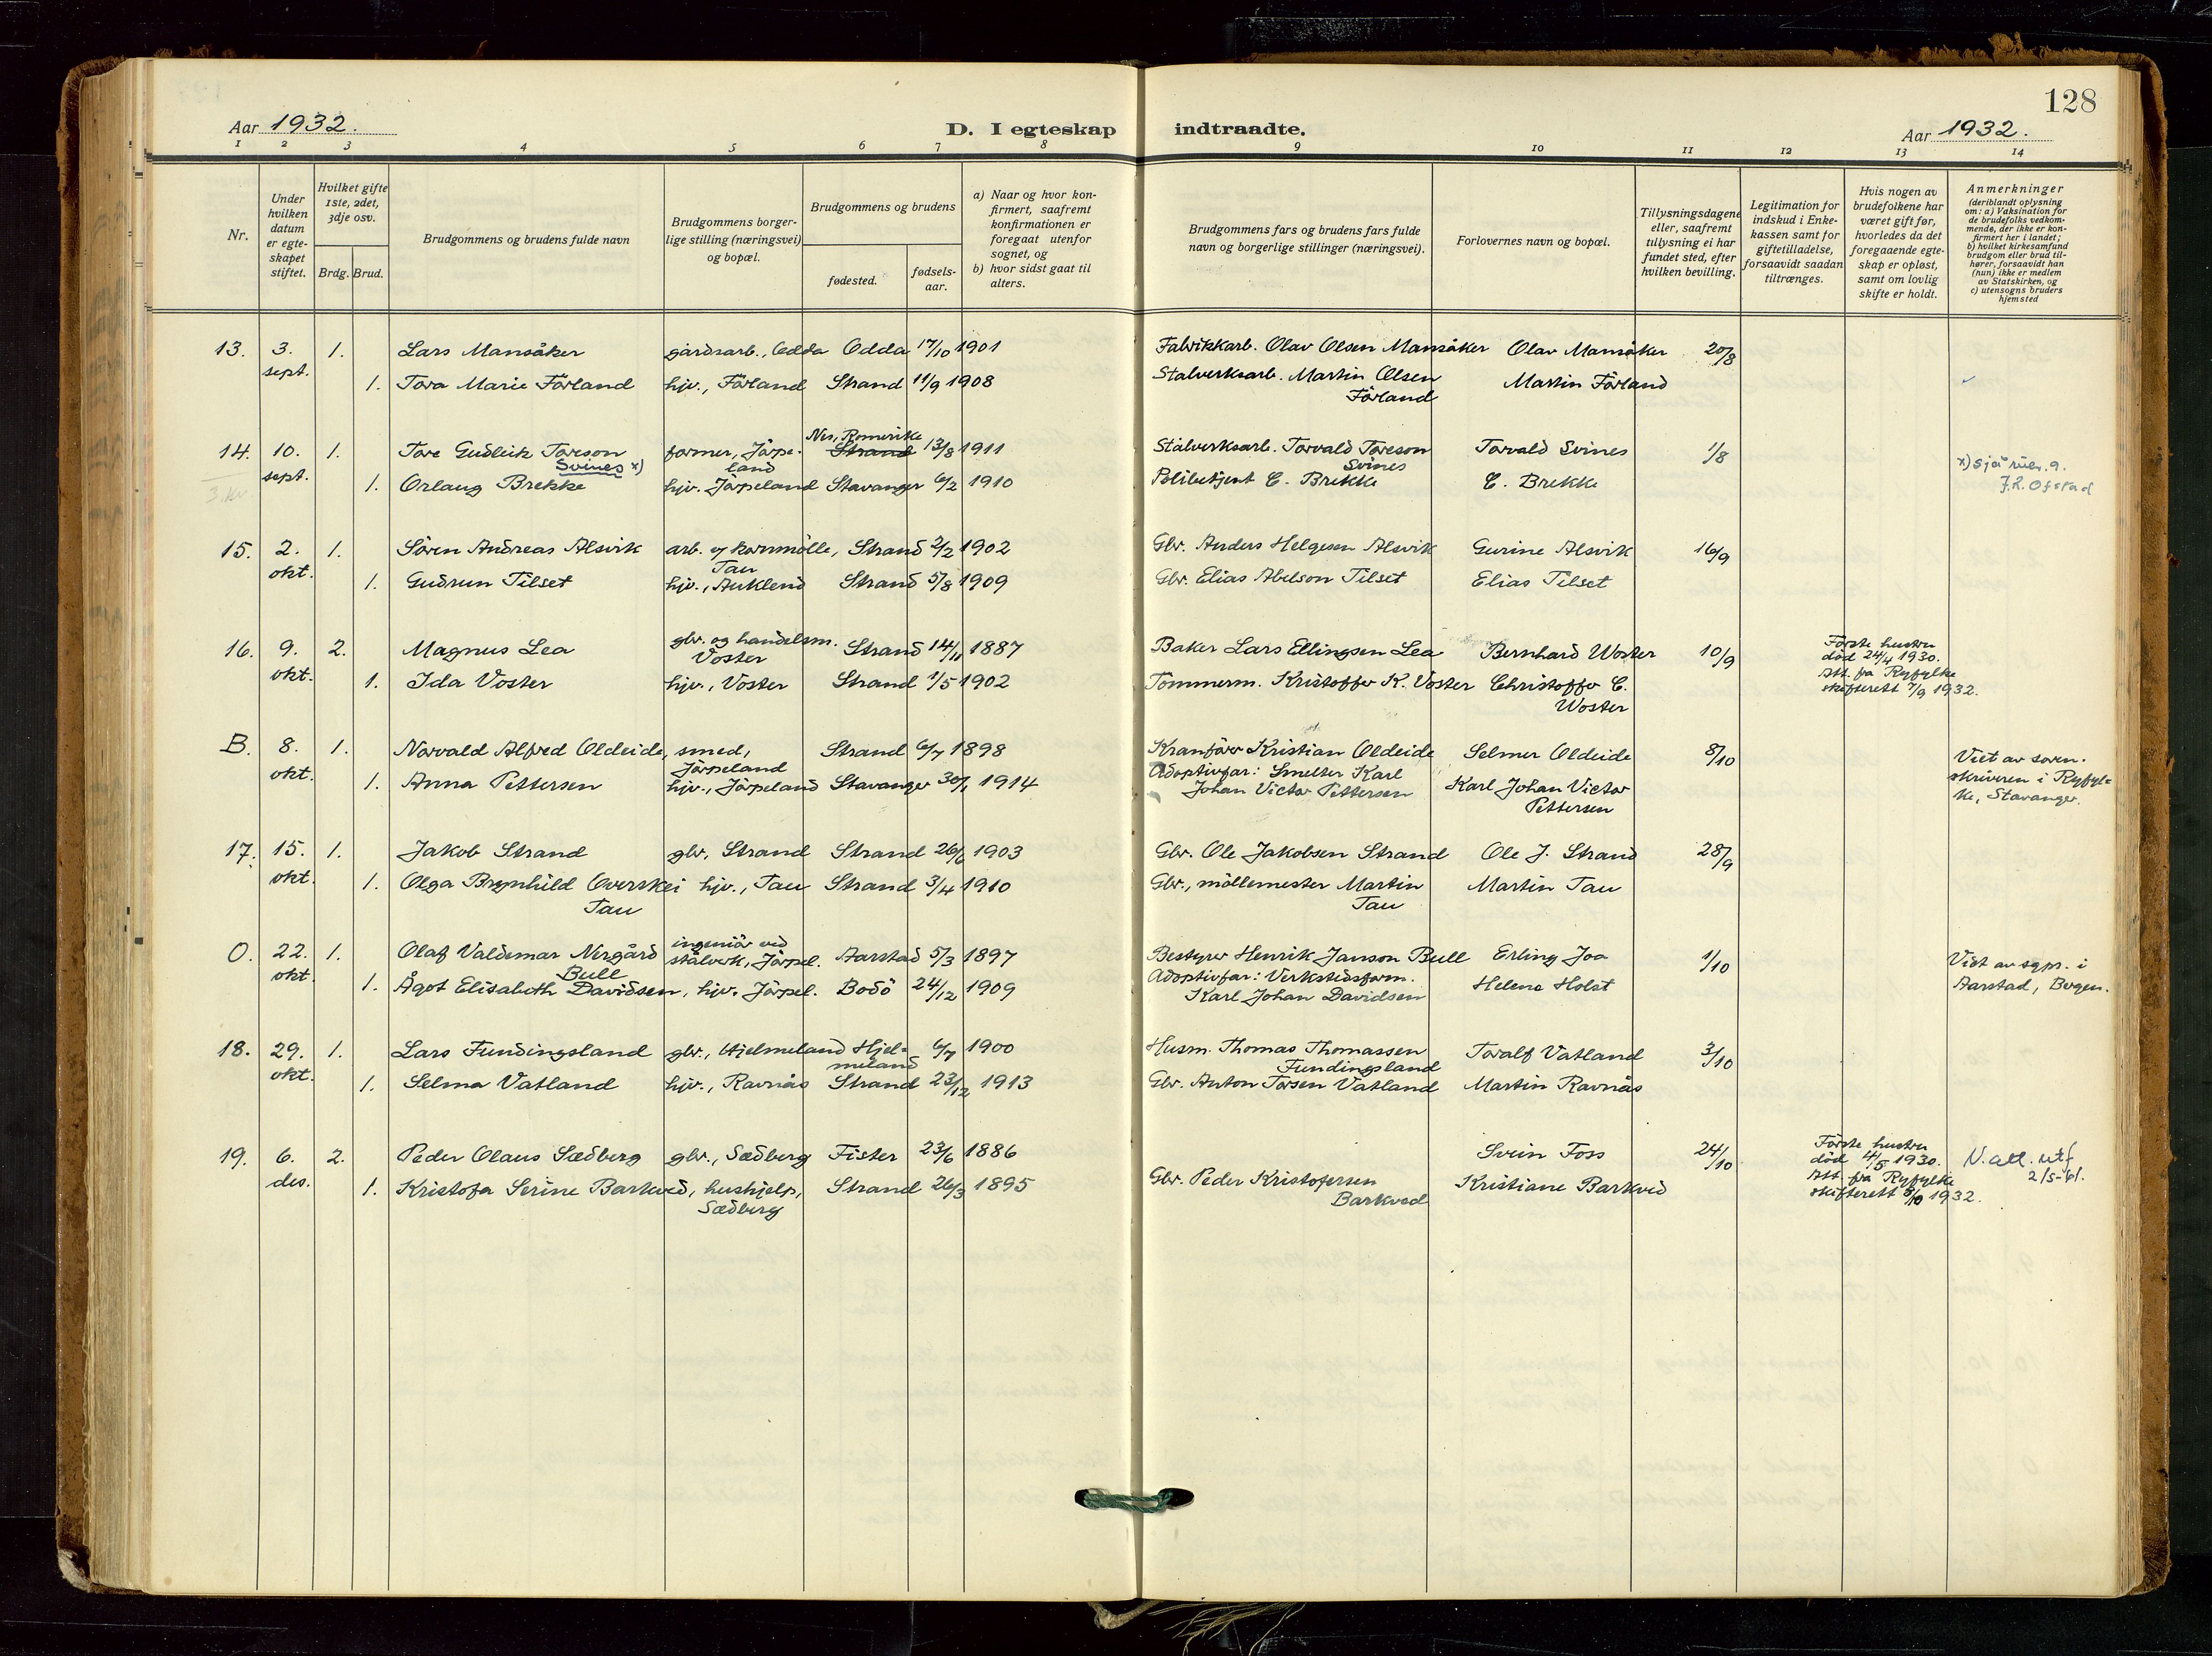 128
Aar 1932.
D. I egteskap indtraadte.
Aar 1932.
1 2 3 4 5 6 7 8 9 10 11 12 13 14
Nr.
Under hvilken datum er egteskapet stiftet.
Hvilket gifte 1ste, 2det, 3dje osv.
Brdg. Brud.
Brudgommens og brudens fulde navn
Brudgommens borgerlige stilling (næringsvei) og bopæl.
Brudgommens og brudens
fødested.
fødselsaar.
a) Naar og hvor konfirmert, saafremt konfirmationen er foregaat utenfor sognet, og
b) hvor sidst gaat til alters.
Brudgommens fars og brudens fars fulde navn og borgerlige stillinger (næringsvei).
Forlovernes navn og bopæl.
Tillysningsdagene eller, saafremt tillysning ei har fundet sted, efter hvilken bevilling.
Legitimation for indskud i Enkekassen samt for giftetilladelse, forsaavidt saadan tiltrænges.
Hvis nogen av brudefolkene har været gift før, hvorledes da det foregaaende egteskap er opløst, samt om lovlig skifte er holdt.
Anmerkninger (deriblandt oplysning om: a) Vaksination for de brudefolks vedkommende, der ikke er konfirmert her i landet; b) hvilket kirkesamfund brudgom eller brud tilhører, forsaavidt han (hun) ikke er medlem av Statskirken, og c) utensogns bruders hjemsted
13. 3. sept. 1. Lars Mansåker gårdsarb., Odda Odda 17/10 1901 Fabrikkarb. Olav Olsen Mansåker Olav Mansåker 20/8
1. Tora Marie Förland hjv., Förland Strand 11/9 1908 Stalverksarb. Martin Olsen Förland Martin Förland
14. 10. sept. 1. Tore Gudleik Toreson Svines x) former, Jörpeland Nes, Romerike Strand 13/8 1911 Stalverksarb. Torvald Toreson Svines Torvald Svines 1/8
x) Sjå rub. 9.
J.R. Ofstad
1. Orlaug Brekke hjv. Jörpeland Stavanger 6/2 1910 Politibetjent C. Brekke C. Brekke
15. 2. okt. 1. Sören Andreas Alsvik arb. v/ kornmölle, Tau Strand 2/2 1902 Gbr. Anders Helgesen Alsvik Gurine Alsvik 16/9
1. Gudrun Tilset hjv., Auklend Strand 5/8 1909 Gbr. Elias Abelson Tilset Elias Tilset
16. 9. okt. 2. Magnus Lea gbr. og handelsm. Voster Strand 14/11 1887 Baker Lars Ellingsen Lea Bernhard Woster 10/9 Förste hustru död 24/4 1930. Att. fra Ryfylke skifterett 7/9 1932.
1. Ida Voster hjv., Voster Strand 1/5 1902 Tömmerm. Kristoffer K. Voster Christoffer C. Woster
B. 8. okt. 1. Norvald Alfred Oldeide, smed, Jörpeland Strand 6/7 1898 Kranförer Kristian Oldeide Selmer Oldeide 8/10 Viet av sorenskriveren i Ryfylke, Stavanger.
1. Anna Pettersen hjv., Jörpeland Stavanger 30/1 1914 Adoptivfar: Smelter Karl Johan Victor Pettersen Karl Johan Victor Pettersen
17. 15. okt. 1. Jakob Strand gbr, Strand Strand 26/6 1903 Gbr. Ole Jakobsen Strand Ole J. Strand 28/9
1. Olga Brynhild Overskei Tau hjv., Tau Strand 3/4 1910 Gbr., möllemester Martin Tau Martin Tau
O. 22. okt. 1. Olaf Valdemar Nergård Bull ingeniör ved stålverk, Jörpel. Aarstad 5/3 1897 Bestyrer Henrik Janson Bull Erling Joa 1/10 Viet av sgpr. i Aarstad, Bergen.
1. Ågot Elisabeth Davidsen, hjv. Jörpel. Bodö 24/12 1909 Adoptivfar: Verkstedsform. Karl Johan Davidsen Helene Holst
18. 29. okt. 1. Lars Fundingsland gbr., Hjelmeland Hjelmeland 6/7 1900 Husm. Thomas Thomassen Fundingsland Toralf Vatland 3/10
1. Selma Vatland hjv., Ravnås Strand 23/12 1913 Gbr. Anton Torsen Vatland Martin Ravnås
19. 6. des. 2. Peder Olaus Sædberg gbr., Sædberg Fister 23/6 1886 Svein Foss 24/10 Förste hustru död 4/5 1930. Att. fra Ryfylke skifterett 8/10 1932. N. att. utf 2/5-61.
1. Kristofa Serine Barkved, hushjelp, Sædberg Strand 26/3 1895 Gbr. Peder Kristofersen Barkved Kristiane Barkved